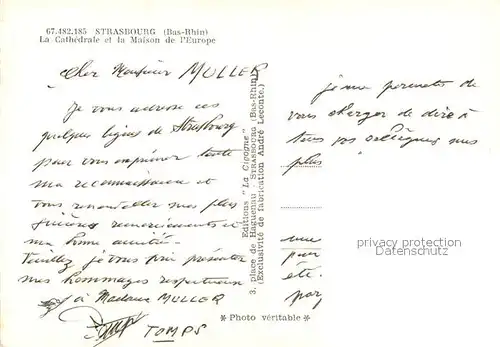 67.482.185 STRASBOURG (Bas-Rhin)
La Cathédrale et la Maison de l'Europe
Cher Monsieur MULLER
Je vous adresse ces
quelques lignes de Strasbourg
pour vous exprimer toute
ma reconnaissance et
vous renouveller mes plus
sincères remerciements et
ma bonne amitié.
Veuillez je vous prie présenter
mes hommages respectueux
à Madame MULLER
TOMPS
Editions "La Cigogne"
3, place de Haguenau - STRASBOURG (Bas-Rhin)
(Exclusivité de fabrication André Leconte.)
je me permets de
vous charger de dire à
tous vos collègues mes
plus
une
pur
été.
par
privacy protection
Datenschutz
* Photo véritable *